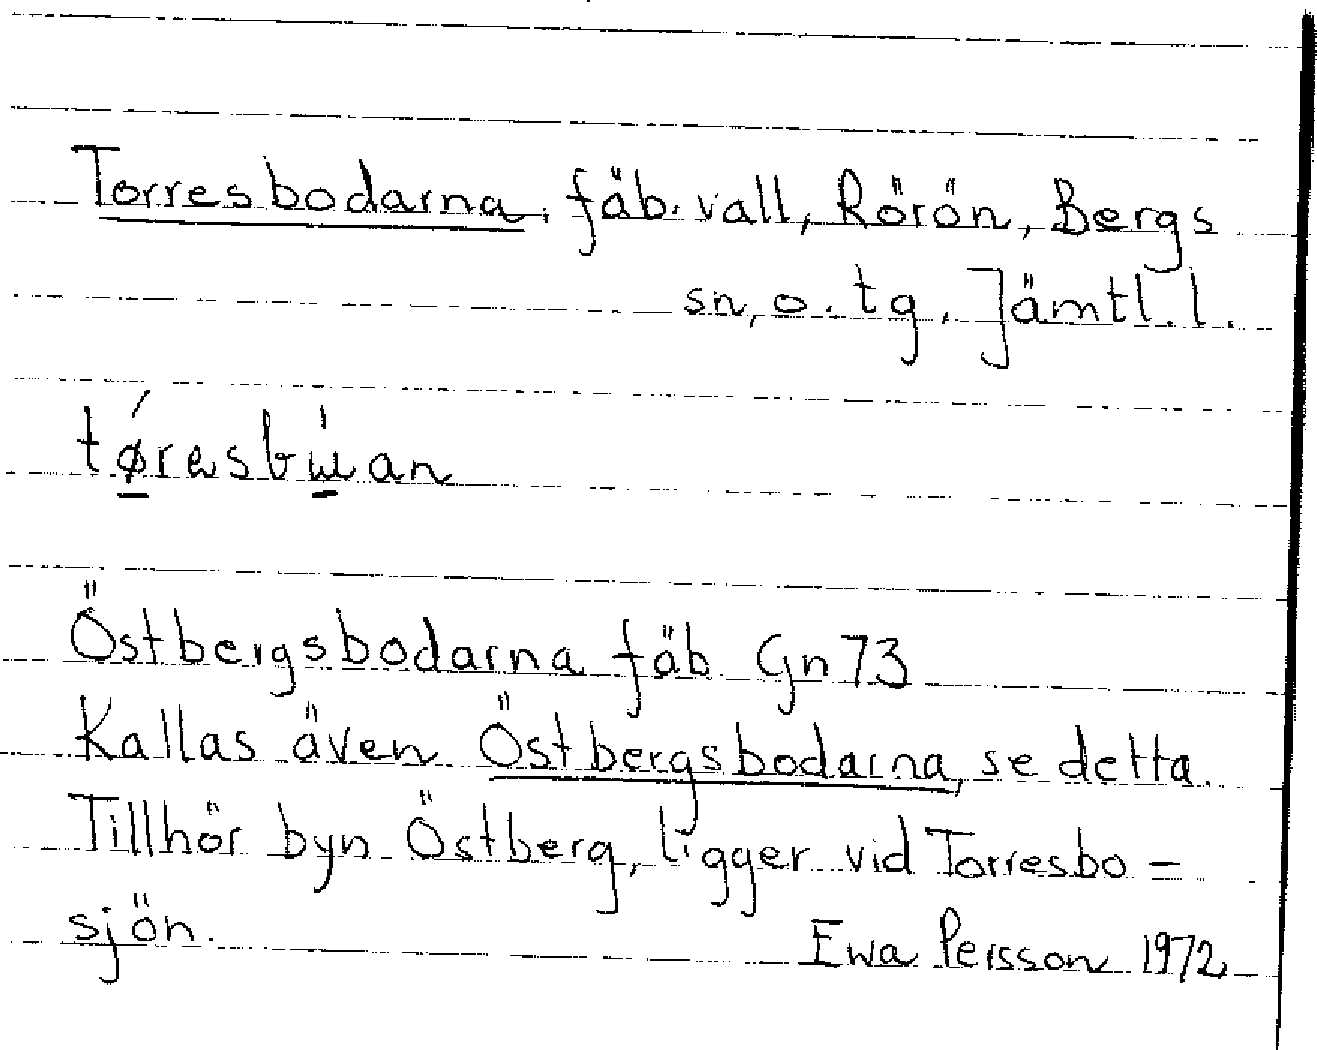 Torresbodarna, fäb.vall, Rörön, Bergs
sn, o. tg, Jämtl.l.
Östbergsbodarna fäb Gn 73
Kallas även Östbergsbodarna, se detta.
Tillhör byn Östberg, ligger vid Torresbo=
sjön.
Ewa Persson 1972